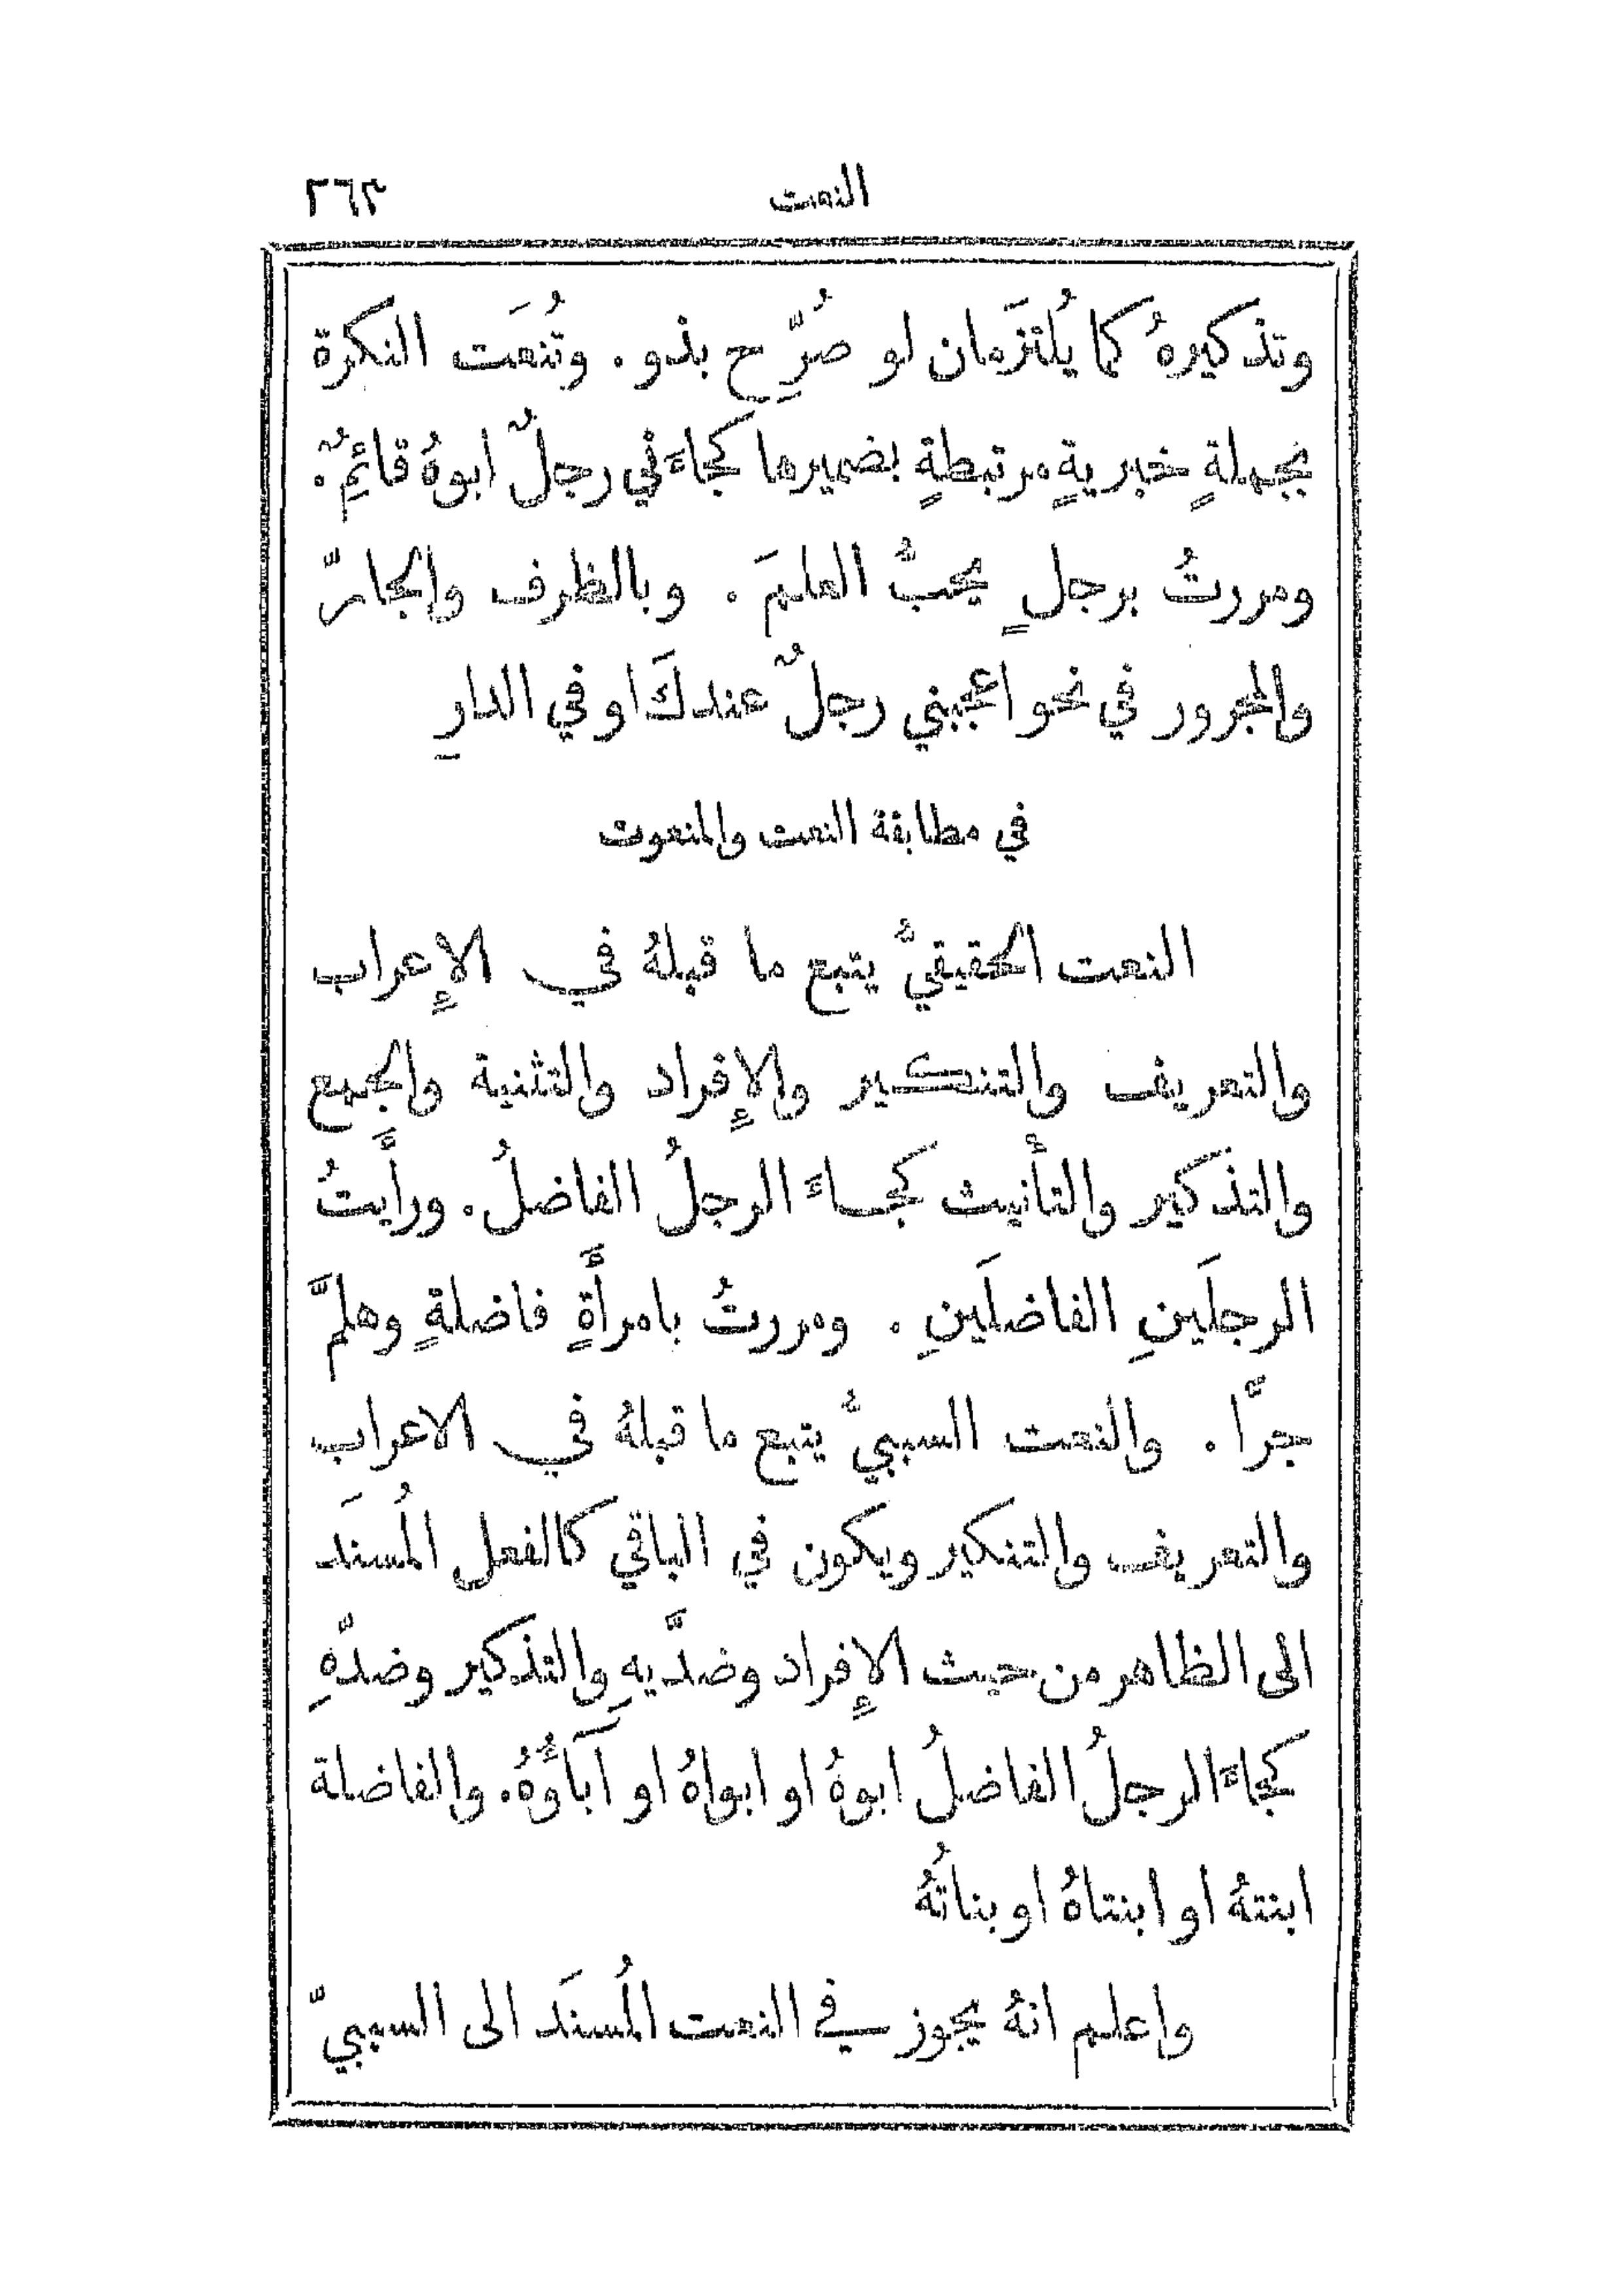 النعت ٢٦٣
وتذكيرهُ كما يُلتزَمان لو صُرِّح بذو. وتُنعَت النكرة
بجملةٍ خبريةٍ مرتبطةٍ بضميرها كجاءَني رجلٌ ابوهُ قائمٌ.
ومررتُ برجلٍ يحبُّ العلمَ. وبالظرف والجارّ
والمجرور في نحو اعجبني رجلٌ عندكَ او في الدارِ
في مطابقة النعت والمنعوت
النعت الحقيقيُّ يتبع ما قبلهُ في الإعراب
والتعريف والتنكير والإفراد والتثنية والجمع
والتذكير والتأنيث كجاءَ الرجلُ الفاضلُ. ورأَيتُ
الرجلَينِ الفاضلَينِ. ومررتُ بامرأَةٍ فاضلةٍ وهلمَّ
جرًّا. والنعت السببيُّ يتبع ما قبلهُ في الاعراب
والتعريف والتنكير ويكون في الباقي كالفعل المُسنَد
الى الظاهر من حيث الإفراد وضدَّيهِ والتذكير وضدّهِ
كجاءَ الرجلُ الفاضلُ ابوهُ او ابواهُ او آباؤُهُ. والفاضلة
ابنتهُ او ابنتاهُ او بناتُهُ
واعلم انهُ يجوز في النعت المُسنَد الى السببيّ